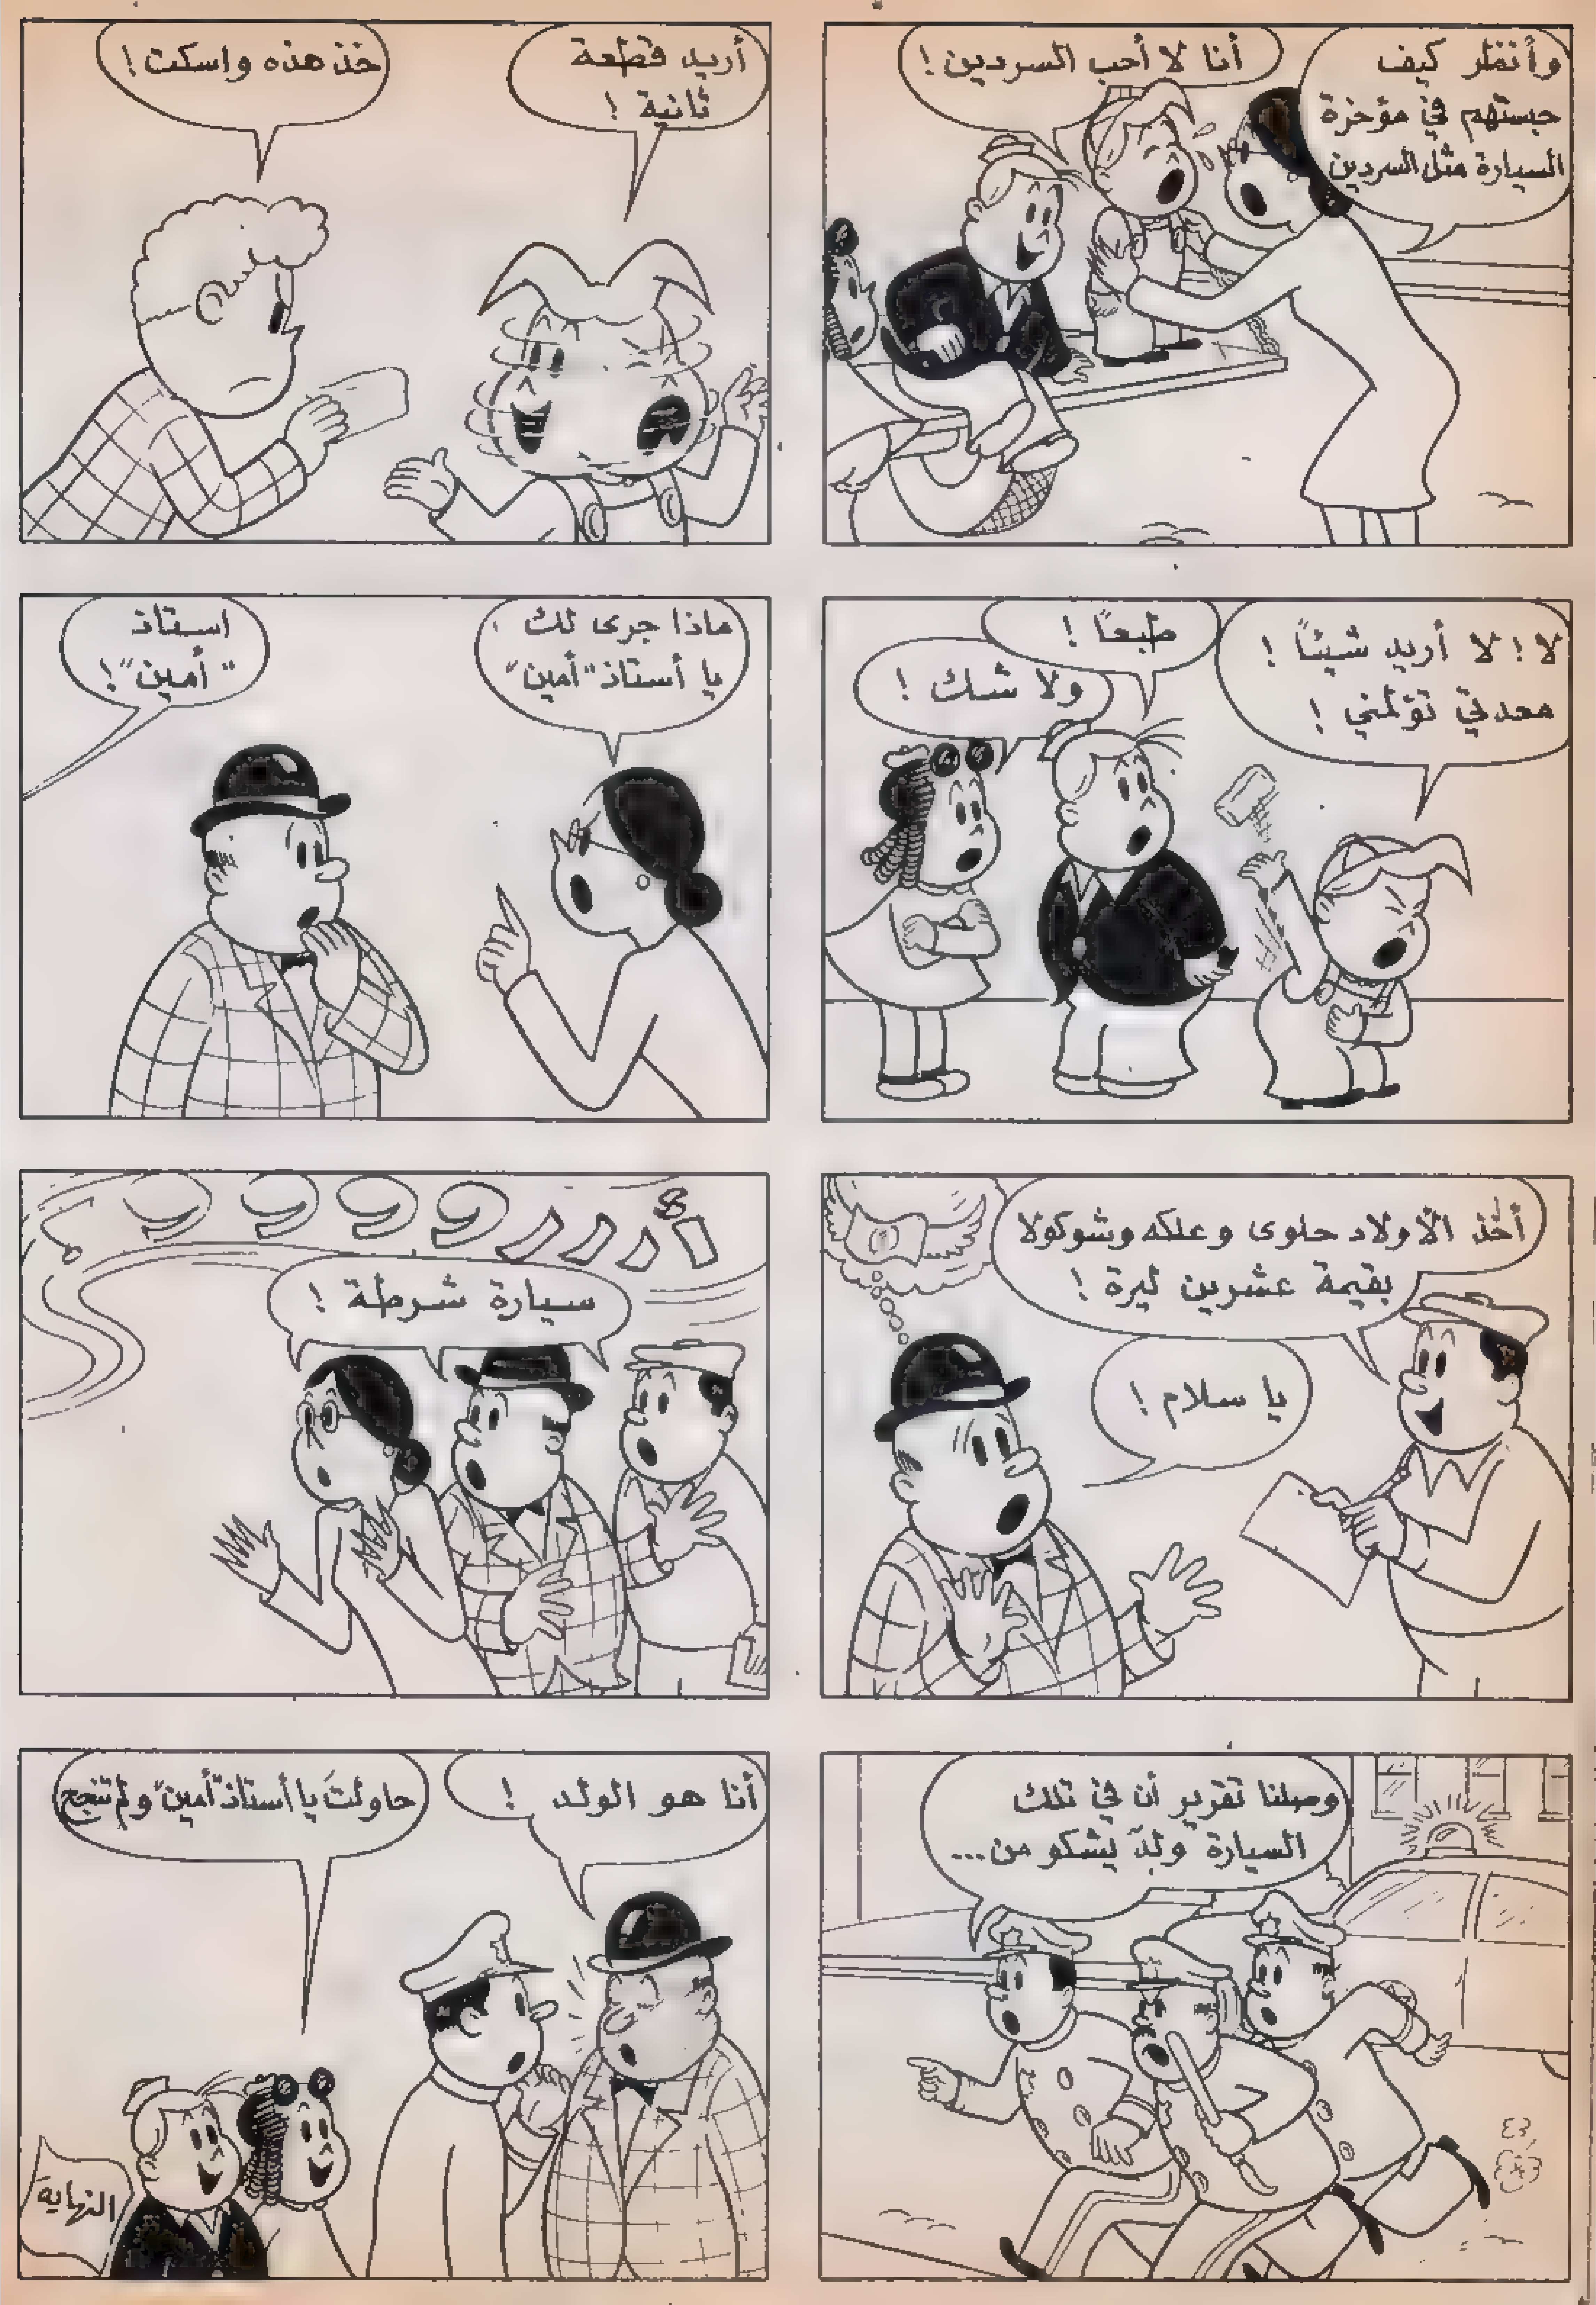 وأنظر كيف
حبستهم في مؤخرة
السيارة مثل السردين
أنا لا أحب السردين !
أريد قطعة
ثانية !
خذ هذه واسكت !
لا ! لا أريد شيئاً !
معدتي تؤلمني !
طبعاً !
ولا شك !
ماذا جرى لك
يا أستاذ "أمين"
استاذ
"أمين" !
أخذ الأولاد حلوى وعلكه وشوكولا
بقيمة عشرين ليرة !
يا سلام !
سيارة شرطة !
وصلنا تقرير أن في تلك
السيارة ولدٌ يشكو من...
أنا هو الولد !
حاولتَ يا أستاذ "أمين" ولم تنجح
النهاية